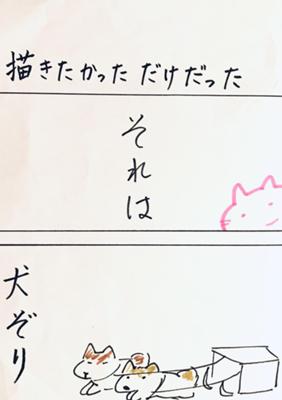 描きたかっただけだった
それは
犬ぞり